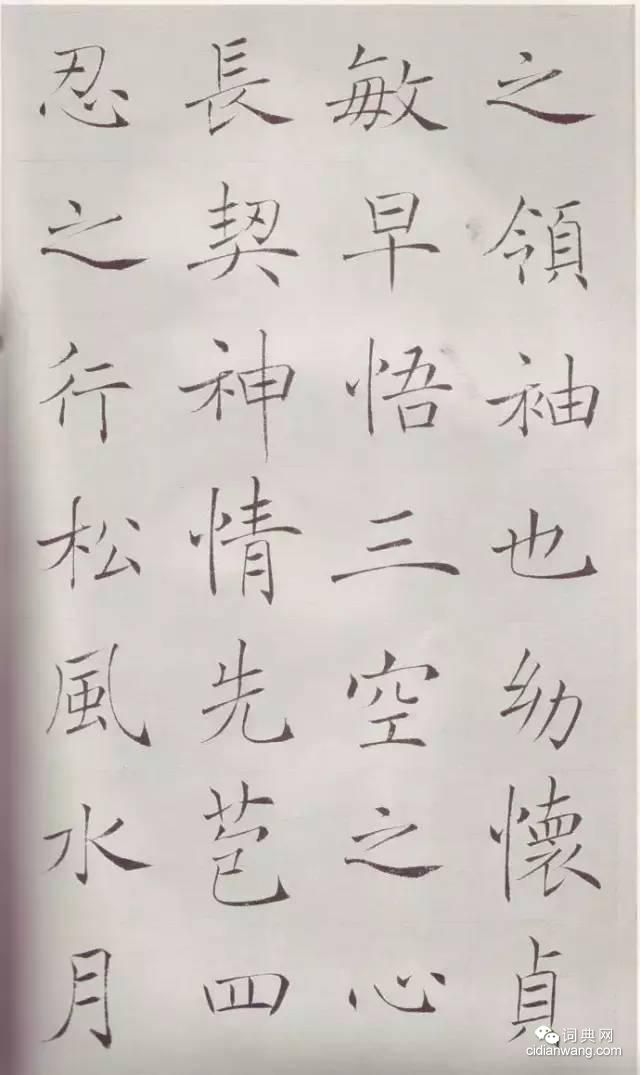 之領袖也幼懷貞
敏早悟三空之心
長契神情先苞四
忍之行松風水月
词典网
cidianwang.com